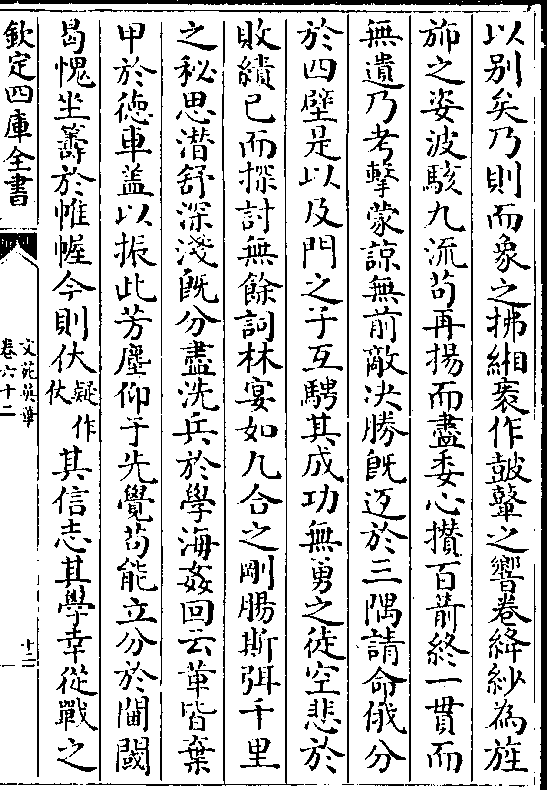 以别矣乃則而象之拂緗袠作鼓鼙之響卷絳紗為旌
斾之姿波駭九流茍再揚而盡委心攢百箭終一貫而
無遺乃考擊蒙諒無前敵决勝既迈於三隅請命俄分
於四壁是以及門之子互騁其成功無勇之徒空悲於
敗績已而探討無餘詞林宴如九合之剛腸斯弭千里
之秘思潜舒深淺既分盡洗兵於學海姦回云革皆棄
甲於徳車盖以振此芳塵仰于先覺茍能立分於閫閾
曷愧坐籌於帷幄今則伏疑作仗其信志其學幸從戰之
欽定四庫全書
文苑英華
卷六十二
十二